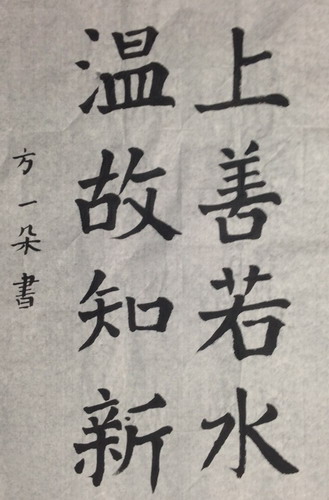 上善若水
温故知新
方一朵書